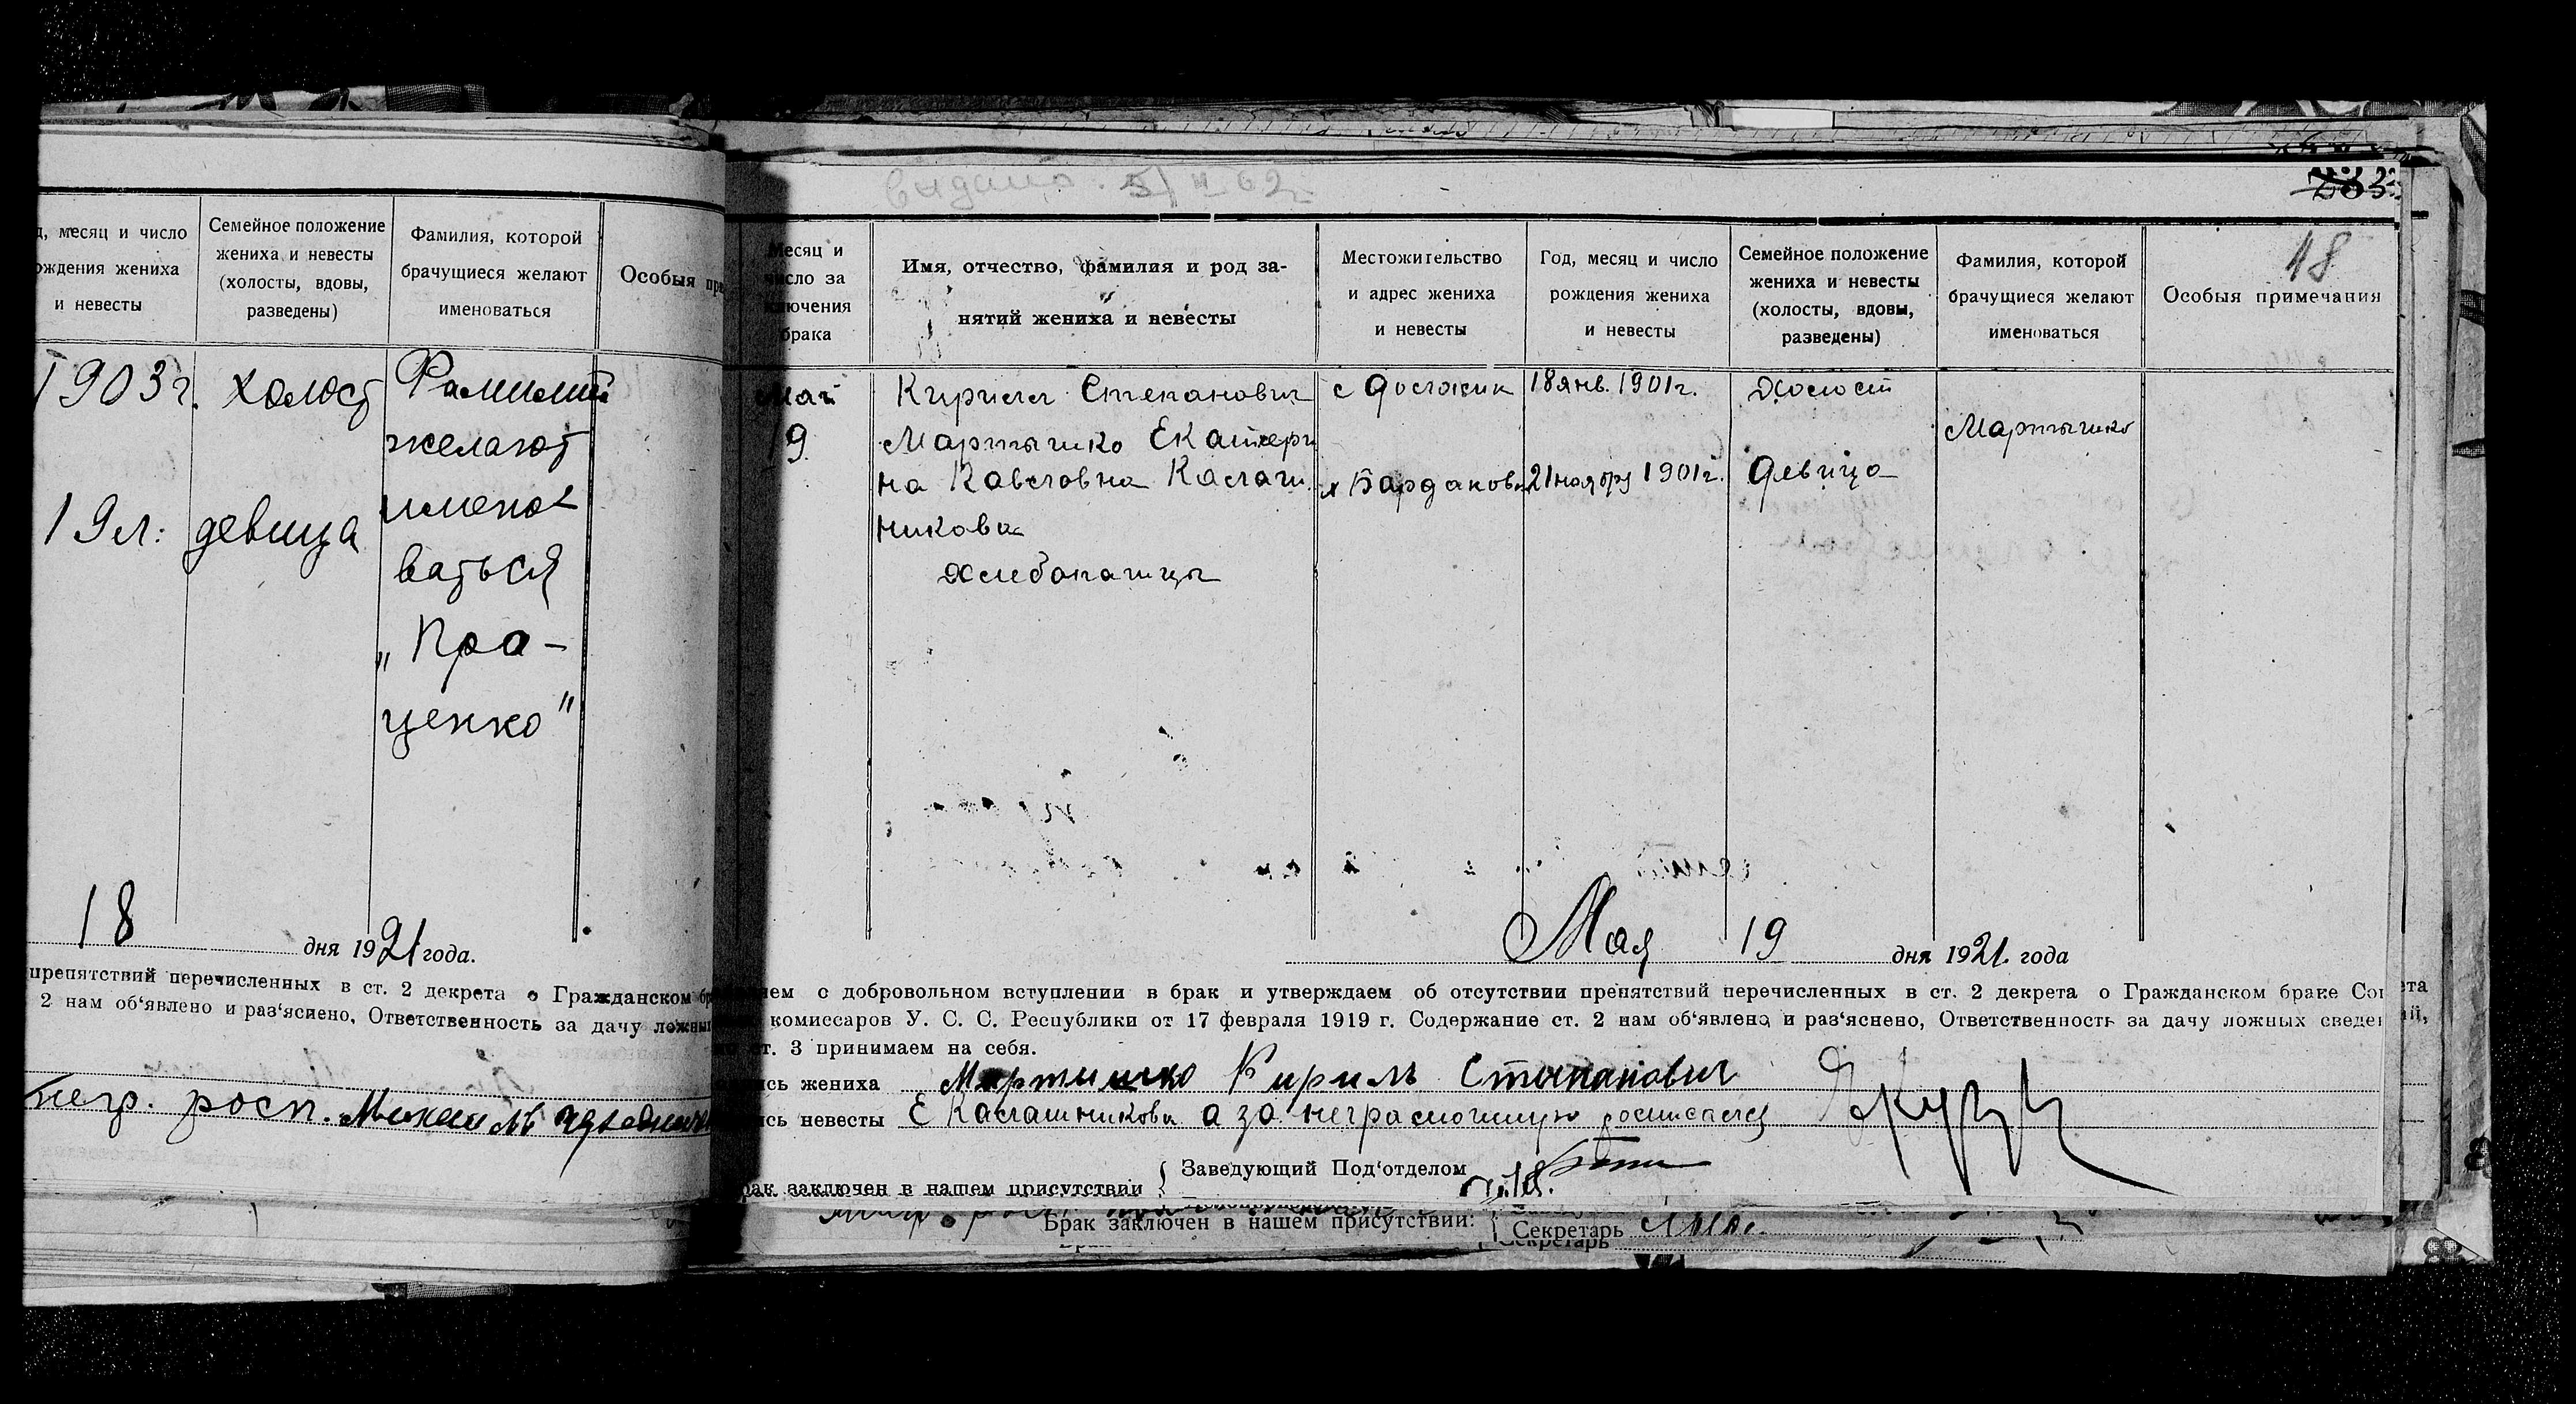 д, месяц и число
ождения жениха
и невесты
Семейное положение
жениха и невесты
(холосты, вдовы,
разведены)
Фамилия, которой
брачущиеся желают
именоваться
Особыя
1903 г. холост Фамилией
желают
имено-
19 л: девица
ваться
„Про-
ценко"
18 дня 1921 года.
препятствий перечисленных в ст. 2 декрета о Гражданском
2 нам об‘явлено и раз‘яснено, Ответственность за дачу
негр. росп.
выдано 62
283
18
Месяц и
число за
ключения
брака
Имя, отчество, фамилия и род за-
нятий жениха и невесты
Местожительство
и адрес жениха
и невесты
Год, месяц и число
рождения жениха
и невесты
Семейное положение
жениха и невесты
(холосты, вдовы,
разведены)
Фамилия, которой
брачущиеся желают
именоваться
Особыя примечания
Май Кирилл Степанович с 18 янв. 1901 г. Холост
19 Мартышко Екатери Мартышко
на Павловна Калаш х Бардаков 21 ноября 1901 г. Девица
никова
Хлебопашцы
Мая 19 дня 1921. года
ем о добровольном вступлении в брак и утверждаем об отсутствии препятствий перечисленных в ст. 2 декрета о Гражданском браке Сов
комиссаров У. С. С. Республики от 17 февраля 1919 г. Содержание ст. 2 нам об‘явлено и раз‘яснено, Ответственность за дачу ложных сведен
ст. 3 принимаем на себя.
ись жениха Мартишко Кирилъ Степанович
ись невесты Е Калашникова а за неграмотную росписался
Заведующий Под‘отделом
рак заключен в нашем присутствии
Брак заключен в нашем присутствии:
Секретарь
Секретарь